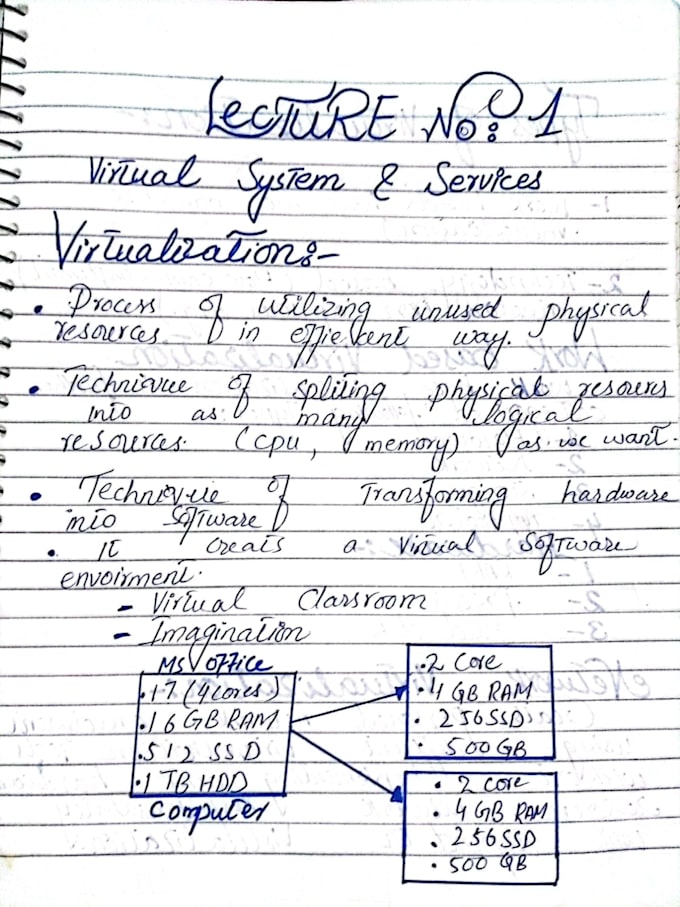 LECTURE No: 1
Virtual System & Services
Virtualization:-
• Process of utilizing unused physical
resources in effiecent way.
• Technique of spliting physical resourcs
into as many logical
resources. (cpu, memory) as we want.
• Technique of Transforming hardware
into Software
• It creats a Virtual Software
envoirment.
- Virtual Classroom
- Imagination
MS Office
• i7 (4 cores)
• 16 GB RAM
• 512 SSD
• 1 TB HDD
Computer
• 2 Core
• 4 GB RAM
• 256 SSD
• 500 GB
• 2 core
• 4 GB RAM
• 256 SSD
• 500 GB